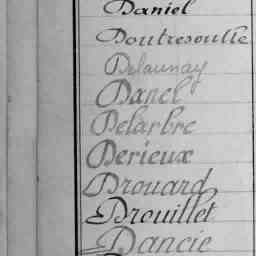 Daniel
Doutresoulle
Delaunay
Danel
Delarbre
Derieux
Drouard
Drouillet
Dancie